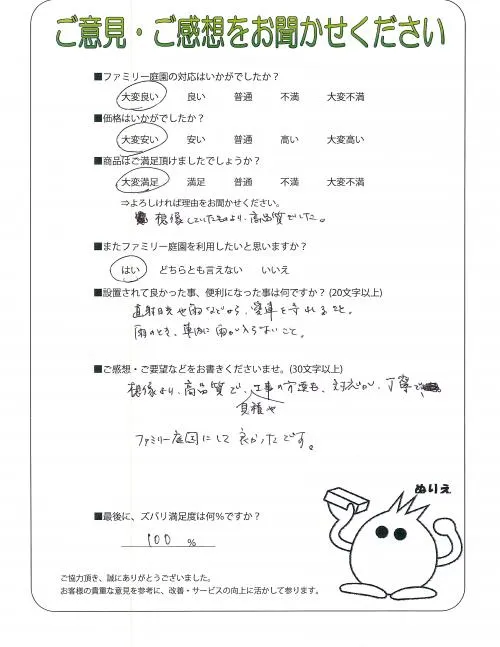 ご意見・ご感想をお聞かせください
■ファミリー庭園の対応はいかがでしたか?
大変良い 良い 普通 不満 大変不満
■価格はいかがでしたか?
大変安い 安い 普通 高い 大変高い
■商品はご満足頂けましたでしょうか?
大変満足 満足 普通 不満 大変不満
⇒よろしければ理由をお聞かせください。
想像していたものより、高品質でした。
■またファミリー庭園を利用したいと思いますか?
はい どちらとも言えない いいえ
■設置されて良かった事、便利になった事は何ですか? (20文字以上)
直射日光や雨などから、愛車を守れること。
雨のとき、車内に雨が入らないこと。
■ご感想・ご要望などをお書きくださいませ。(30文字以上)
想像より、高品質で、工事の方達も、対応が、丁寧で
見積や
ファミリー庭園にして良かったです。
ぬりえ
■最後に、ズバリ満足度は何%ですか?
100 %
ご協力頂き、誠にありがとうございました。
お客様の貴重な意見を参考に、改善・サービスの向上に活かして参ります。